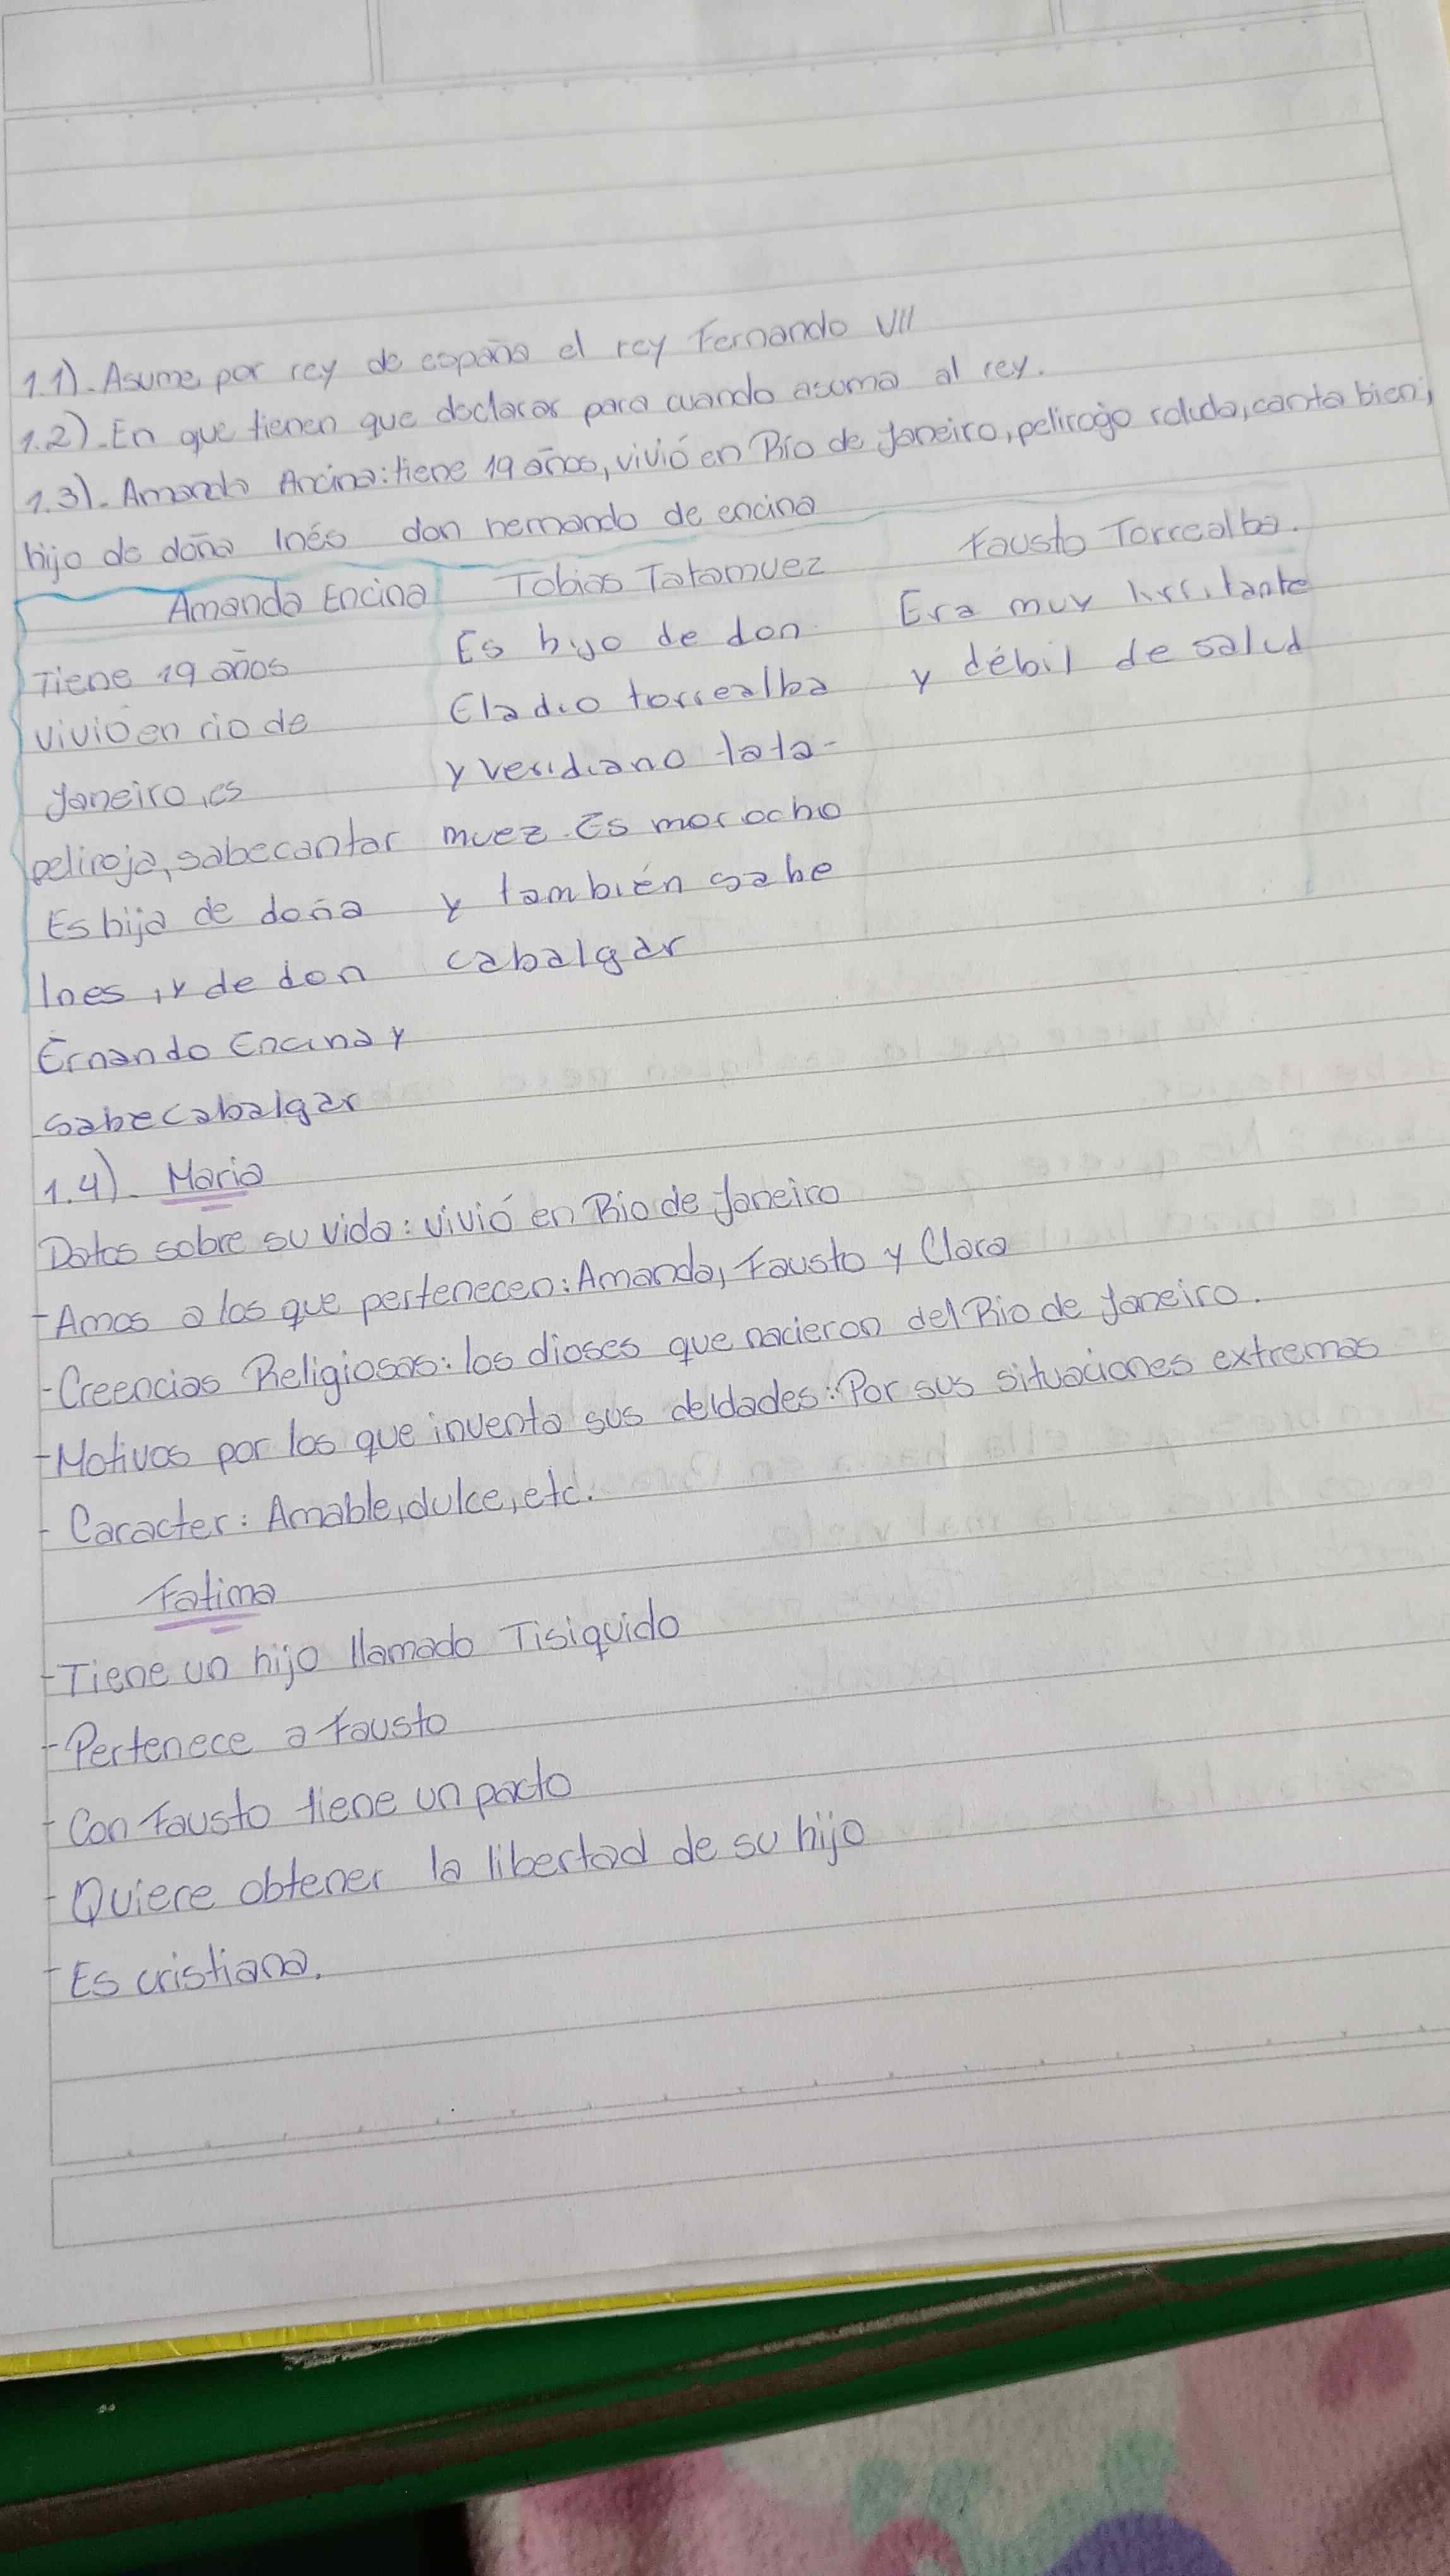 1.1). Asume por rey de españa el rey Fernando VII
1.2). En que tienen que declarar para cuando asuma al rey.
1.3). Amanda Ancina: tiene 19 años, vivió en Río de Janeiro, pelirogo canta bien,
hijo de doña Inés don hernando de encina
Amanda Encina Tobias Tatamuez Fausto Torrealba.
Tiene 19 años Es hijo de don Era muy irritante
vivio en rio de Eladio torrealba y débil de salud
Janeiro, es y veridiano tata-
peliroja, sabe cantar muez. Es morocho
Es hija de doña y también sabe
Ines, y de don cabalgar
Ernando Encina y
sabe cabalgar
1.4). Maria
Datos sobre su vida: vivió en Rio de Janeiro
- Amos a los que pertenecen: Amanda, Fausto y Clara
- Creencias Religiosas: los dioses que nacieron del Rio de Janeiro.
- Motivos por los que inventa sus deidades: Por sus situaciones extremas
- Caracter: Amable, dulce, etc.
Fatima
- Tiene un hijo llamado Tisiquido
- Pertenece a Fausto
- Con Fausto tiene un pacto
- Quiere obtener la libertad de su hijo
- Es cristiana.